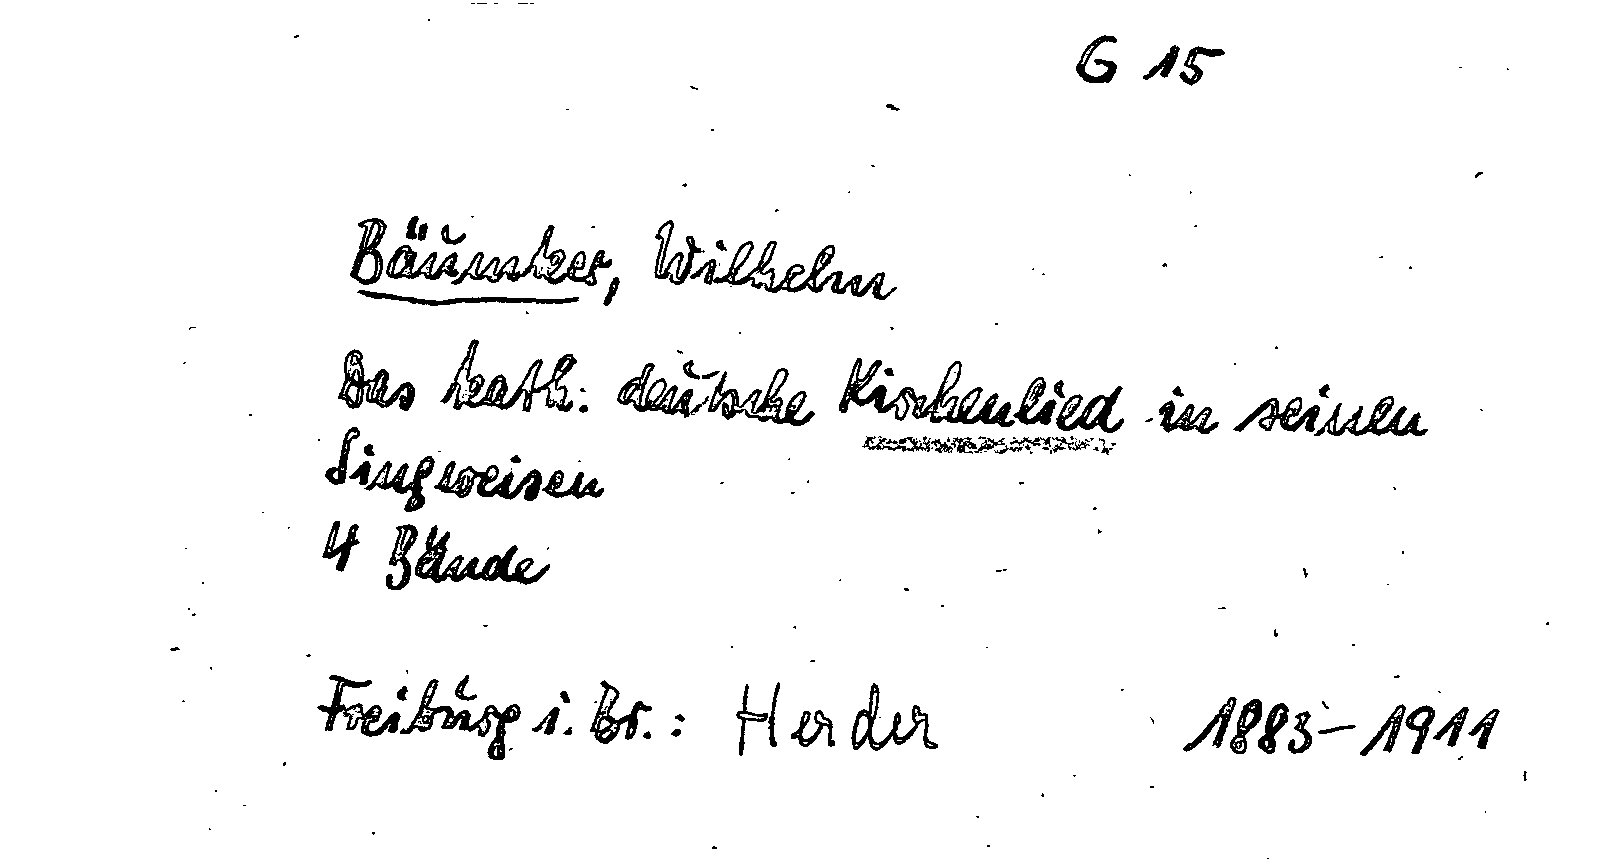 G 15
Bäumker, Wilhelm
Das kath. deutsche Kirchenlied in seinen
Singweisen
4 Bände
Freiburg i. Br.: Herder 1883-1911